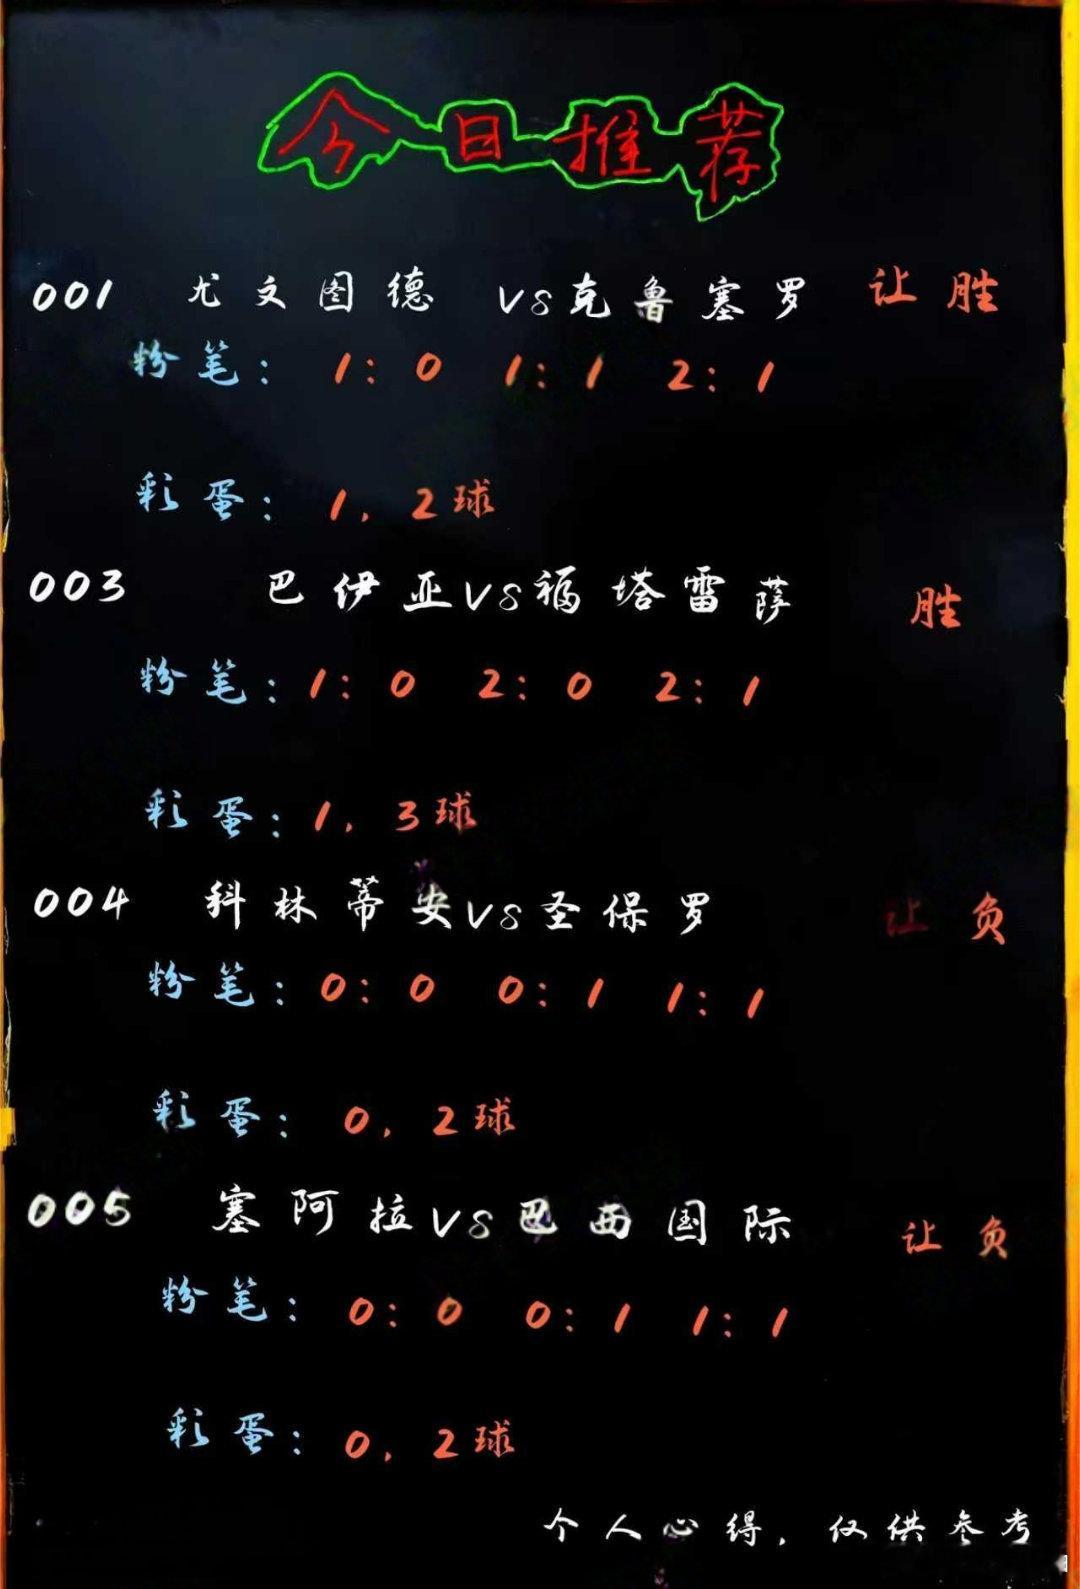 今日推荐
001 尤文图德 VS克鲁塞罗 让胜
粉笔: 1:0 1:1 2:1
彩蛋: 1,2球
003 巴伊亚VS福塔雷萨 胜
粉笔:1:0 2:0 2:1
彩蛋:1,3球
004 科林蒂安VS圣保罗 让负
粉笔:0:0 0:1 1:1
彩蛋: 0,2球
005 塞阿拉VS巴西国际 让负
粉笔: 0:0 0:1 1:1
彩蛋: 0,2球
个人心得,仅供参考